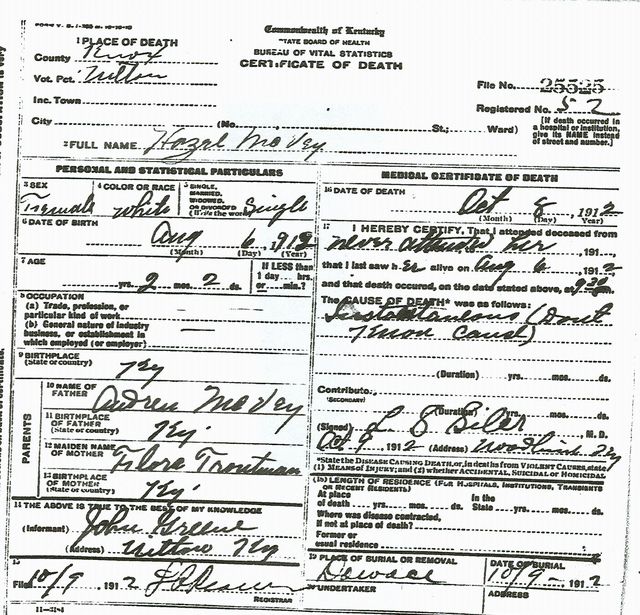 Commonwealth of Kentucky
STATE BOARD OF HEALTH
BUREAU OF VITAL STATISTICS
CERTIFICATE OF DEATH
1 PLACE OF DEATH
County Knox
Vot. Pct.
Inc. Town
City (No. St.; Ward)
File No. 25525
Registered No. 52
[If death occurred in a hospital or institution, give its NAME instead of street and number.]
2 FULL NAME Hazel McVey
PERSONAL AND STATISTICAL PARTICULARS
3 SEX Female
4 COLOR OR RACE white
5 SINGLE, MARRIED, WIDOWED, OR DIVORCED (Write the word) Single
6 DATE OF BIRTH Aug 6, 1912
(Month) (Day) (Year)
7 AGE
yrs. 2 mos. 2 ds.
If LESS than 1 day hrs. or min.?
8 OCCUPATION
(a) Trade, profession, or particular kind of work
(b) General nature of industry business, or establishment in which employed (or employer)
9 BIRTHPLACE
(State or country) Ky
PARENTS
10 NAME OF FATHER Andrew McVey
11 BIRTHPLACE OF FATHER
(State or country) Ky
12 MAIDEN NAME OF MOTHER Flora Troutman
13 BIRTHPLACE OF MOTHER
(State or country) Ky
14 THE ABOVE IS TRUE TO THE BEST OF MY KNOWLEDGE
(Informant) John Greene
(Address) Ky
15
Filed 10/9 1912
REGISTRAR
11-3184
MEDICAL CERTIFICATE OF DEATH
16 DATE OF DEATH Oct 8, 1912
(Month) (Day) (Year)
17 I HEREBY CERTIFY, That I attended deceased from
never attended her, 191
that I last saw her alive on Aug 6, 1912
and that death occured, on the date stated above, at m.
The CAUSE OF DEATH* was as follows:
Instantaneous (Dont
Know Cause)
(Duration) yrs. mos. ds.
Contributory
(SECONDARY)
(Duration) yrs. mos. ds.
(Signed) M. D.
Oct 9, 1912 (Address) Ky
*State the DISEASE CAUSING DEATH, or, in deaths from VIOLENT CAUSES, state
(1) MEANS OF INJURY; and (2) whether ACCIDENTAL, SUICIDAL or HOMICIDAL
18 LENGTH OF RESIDENCE (FOR HOSPITALS, INSTITUTIONS, TRANSIENTS
OR RECENT RESIDENTS)
At place of death yrs. mos. ds. In the State yrs. mos. ds.
Where was disease contracted,
if not at place of death?
Former or
usual residence
19 PLACE OF BURIAL OR REMOVAL
DATE OF BURIAL
10/9 1912
20 UNDERTAKER
ADDRESS